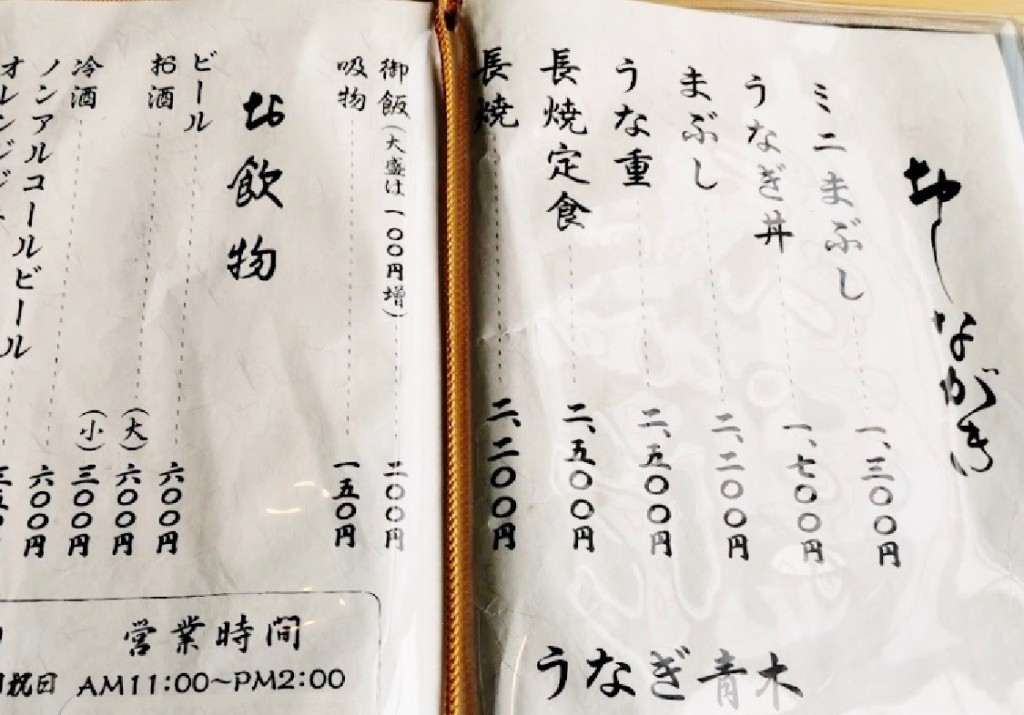 おしながき
ミニまぶし 一、三〇〇円
うなぎ丼 一、七〇〇円
まぶし 二、二〇〇円
うな重 二、五〇〇円
長焼定食 二、五〇〇円
長焼 二、二〇〇円
うなぎ青木
御飯(大盛は一〇〇円増) 二〇〇円
吸物 一五〇円
お飲物
ビール 六〇〇円
お酒 (大) 六〇〇円
(小) 三〇〇円
冷酒 六〇〇円
ノンアルコールビール
オレンジ
営業時間
祝日 AM11:00~PM2:00